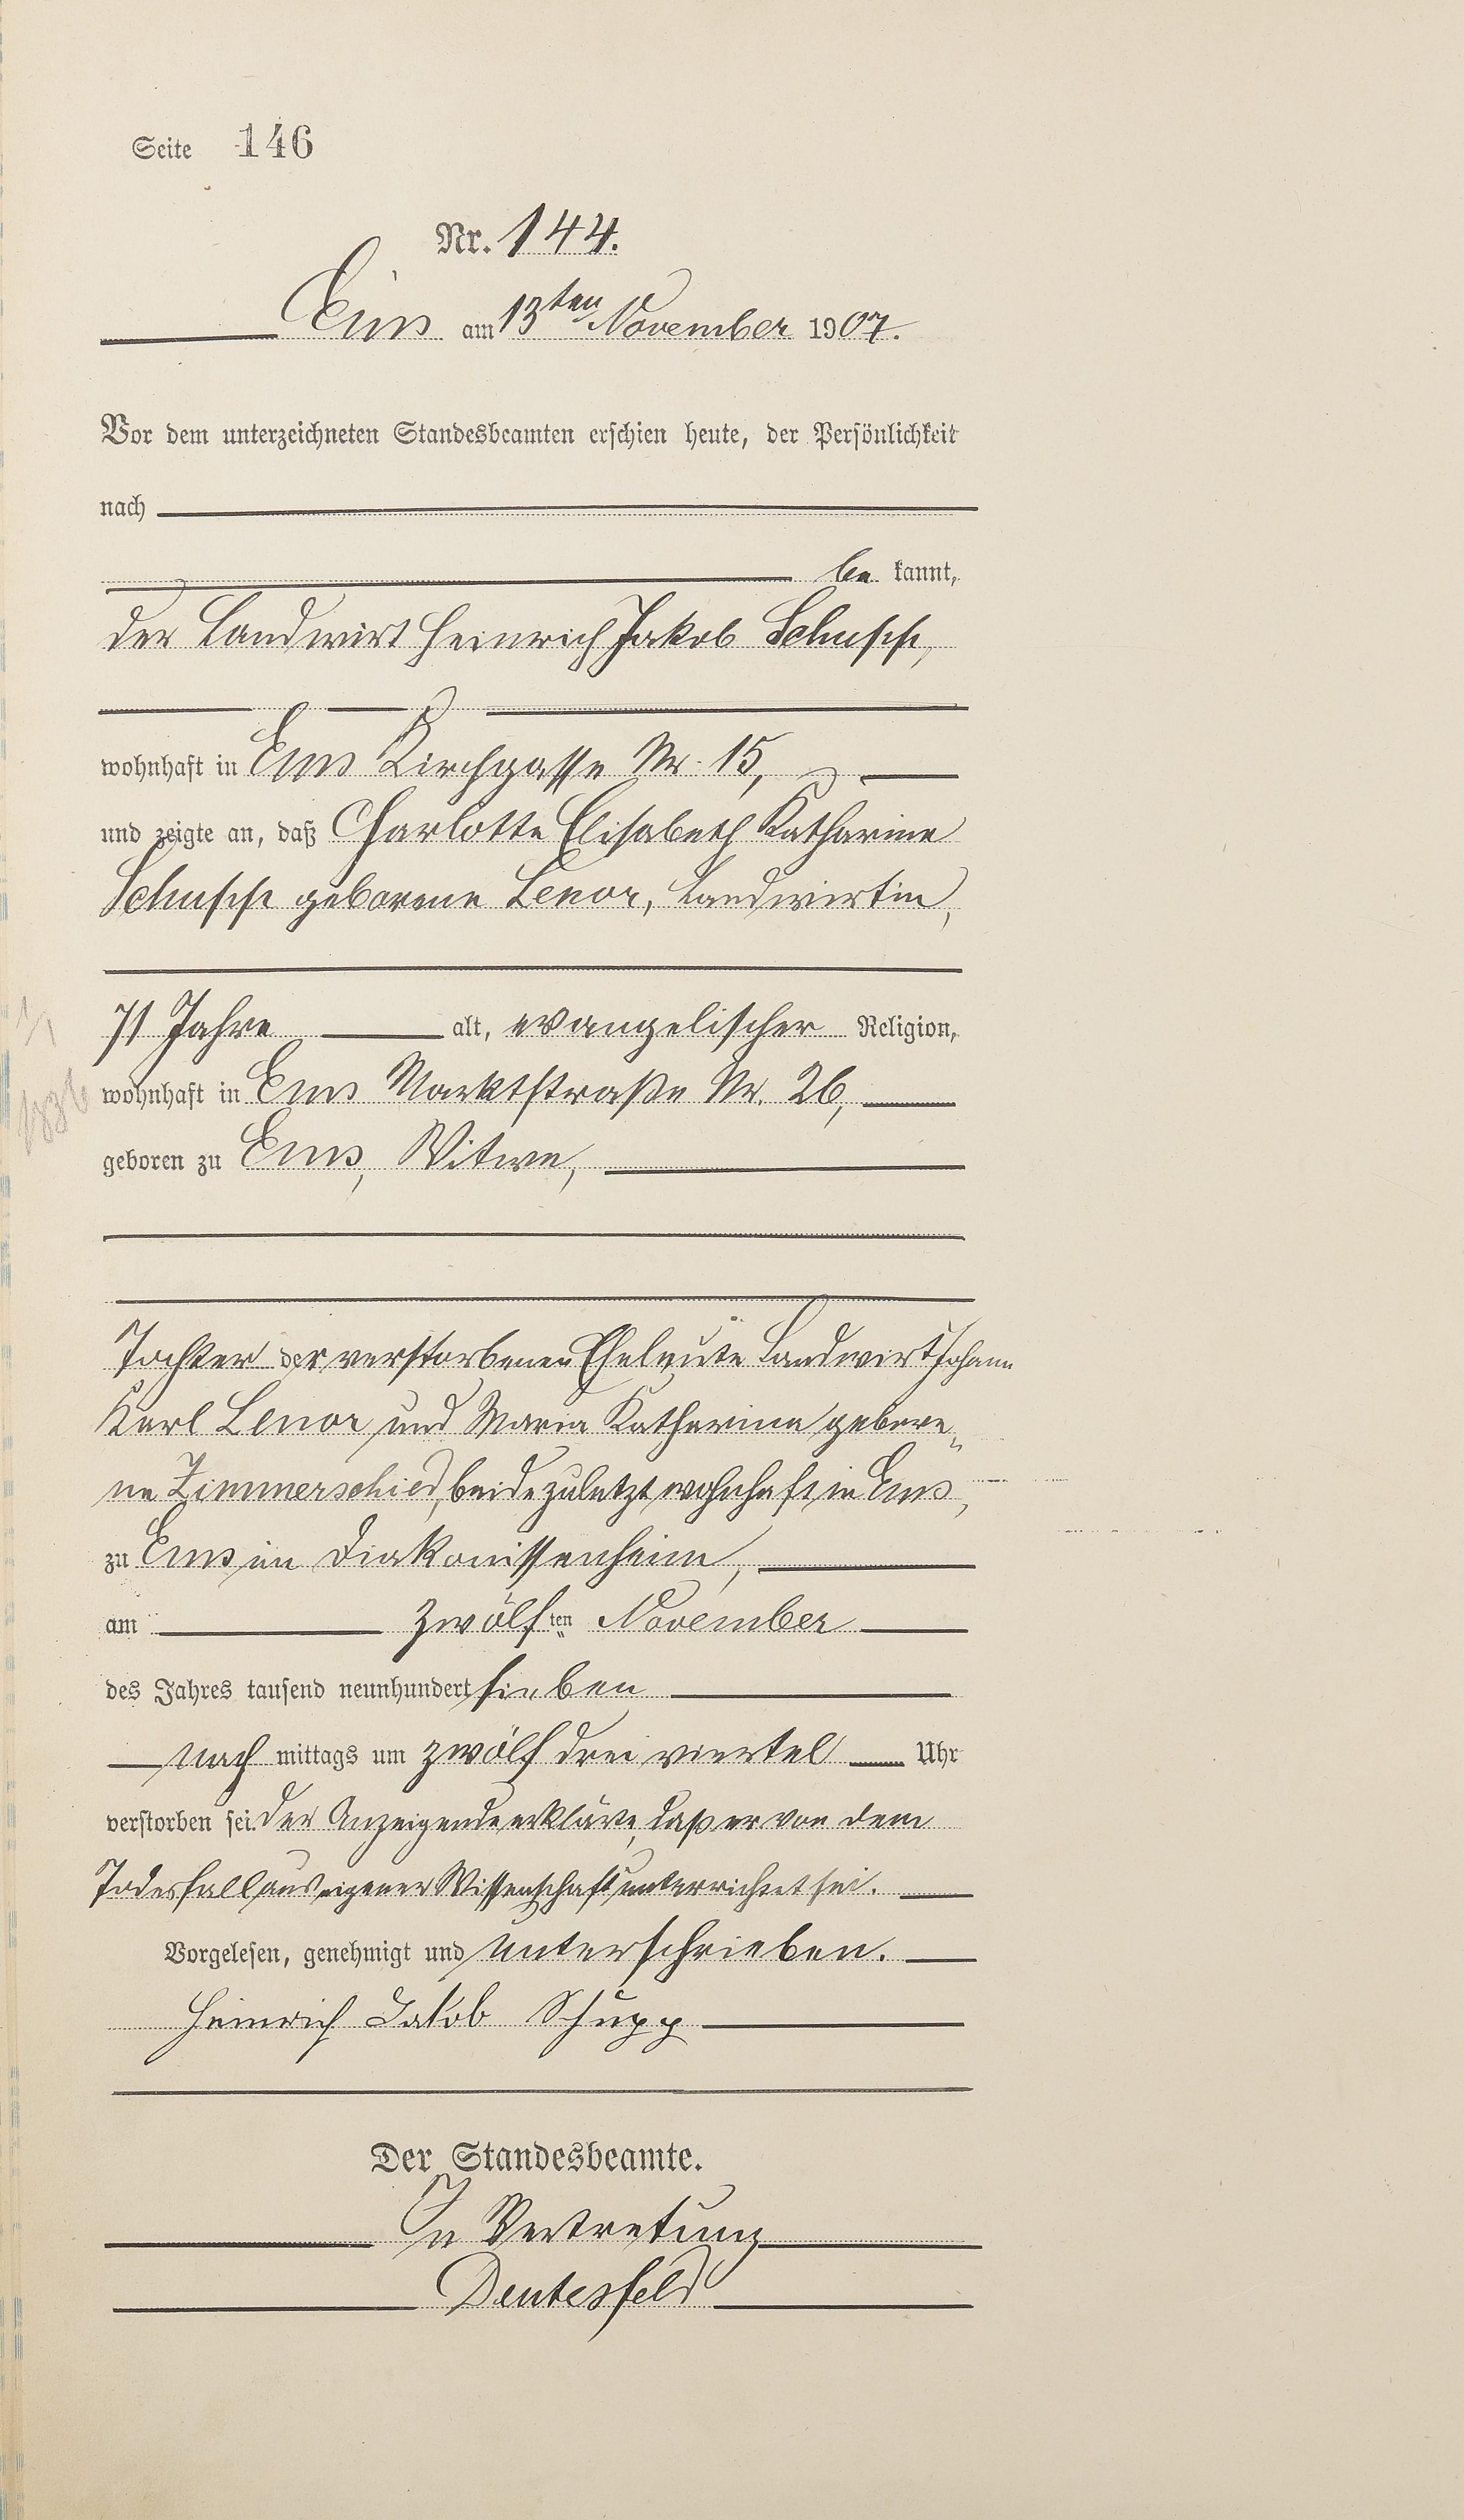 Seite 146
Nr. 144.
Ems am 13ten November 1907.
Vor dem unterzeichneten Standesbeamten erschien heute, der Persönlichkeit
nach
be kannt,
der Landwirt Heinrich Jakob Schupp,
wohnhaft in Ems Kirchgasse Nr. 15,
und zeigte an, daß Charlotte Elisabeth Katharine
Schupp geborene Lenor, Landwirtin,
71 Jahre alt, evangelischer Religion,
wohnhaft in Ems Marktstraße Nr. 26,
geboren zu Ems, Witwe,
Tochter der verstorbenen Eheleute Landwirt Johann
Karl Lenor und Maria Katharina gebore„
ne Zimmerschied, beide zuletzt wohnhaft in Ems,
zu Ems im Diakonissenheim,
am zwölften November
des Jahres tausend neunhundert sieben
nach mittags um zwölf drei viertel Uhr
verstorben sei. Der Anzeigende erkläre, daß er von dem
Todesfall aus eigener Wissenschaft unterrichtet sei.
Vorgelesen, genehmigt und unterschrieben.
Heinrich Jakob Schupp
Der Standesbeamte.
In Vertretung
Deutesfeld